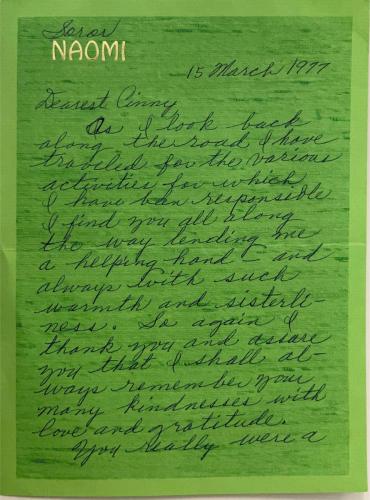 Soror
NAOMI
15 March 1977
Dearest Cinny
As I look back
along the road I have
traveled for the various
activities for which
I have ban responsible
I find you all along
the way lending me
a helping hand - and
always with such
warmth and sisterli-
ness. So again I
thank you and assure
you that I shall al-
ways remember your
many kindnesses with
love and gratitude.
You really were a